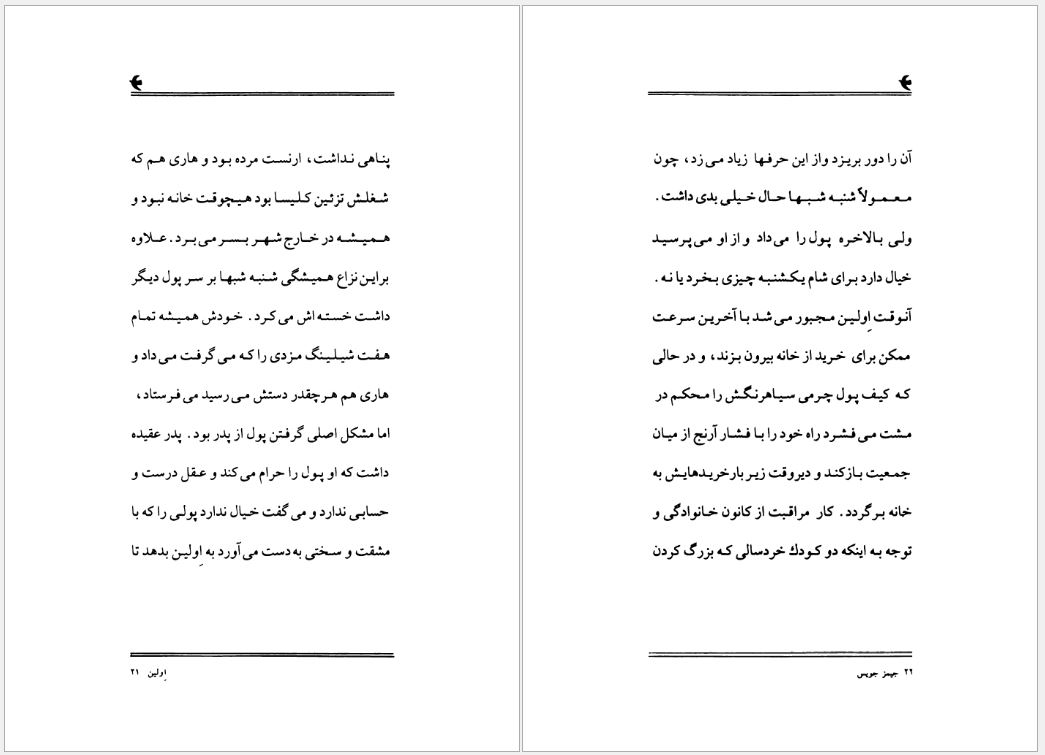 پناهی نداشت، ارنست مرده بود و هاری هم که
شغلش تزئین کلیسا بود هیچوقت خانه نبود و
همیشه در خارج شهر بسر می‌برد. علاوه
براین نزاع همیشگی شنبه شبها بر سر پول دیگر
داشت خسته اش می‌کرد. خودش همیشه تمام
هفت شیلینگ مزدی را که می‌گرفت می‌داد و
هاری هم هرچقدر دستش می‌رسید می‌فرستاد،
اما مشکل اصلی گرفتن پول از پدر بود. پدر عقیده
داشت که او پول را حرام می‌کند و عقل درست و
حسابی ندارد و می‌گفت خیال ندارد پولی را که با
مشقت و سختی به‌دست می‌آورد به اِولین بدهد تا
اِولین ۲۱
آن را دور بریزد واز این حرفها زیاد می‌زد، چون
معمولاً شنبه شبها حال خیلی بدی داشت.
ولی بالاخره پول را می‌داد و از او می‌پرسید
خیال دارد برای شام یکشنبه چیزی بخرد یا نه.
آنوقت اِولین مجبور می‌شد با آخرین سرعت
ممکن برای خرید از خانه بیرون بزند، و در حالی
که کیف پول چرمی سیاهرنگش را محکم در
مشت می‌فشرد راه خود را با فشار آرنج از میان
جمعیت بازکند و دیروقت زیر بارخریدهایش به
خانه برگردد. کار مراقبت از کانون خانوادگی و
توجه به اینکه دو کودك خردسالی که بزرگ کردن
۲۲ جیمز جویس